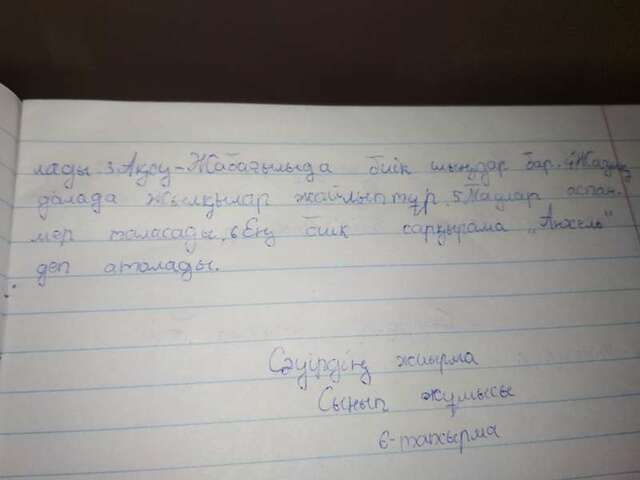 лады. 3 Ақсу-Жабағылыда биік шыңдар бар. 4 Жазық
далада жылқылар жайлып тұр. 5 Таулар аспан-
мер таласады. 6 Ең биік сарқырама „Анхель"
деп аталады.
Сәуірдің жиырма
Сынып жұмысы
6-тапсырма